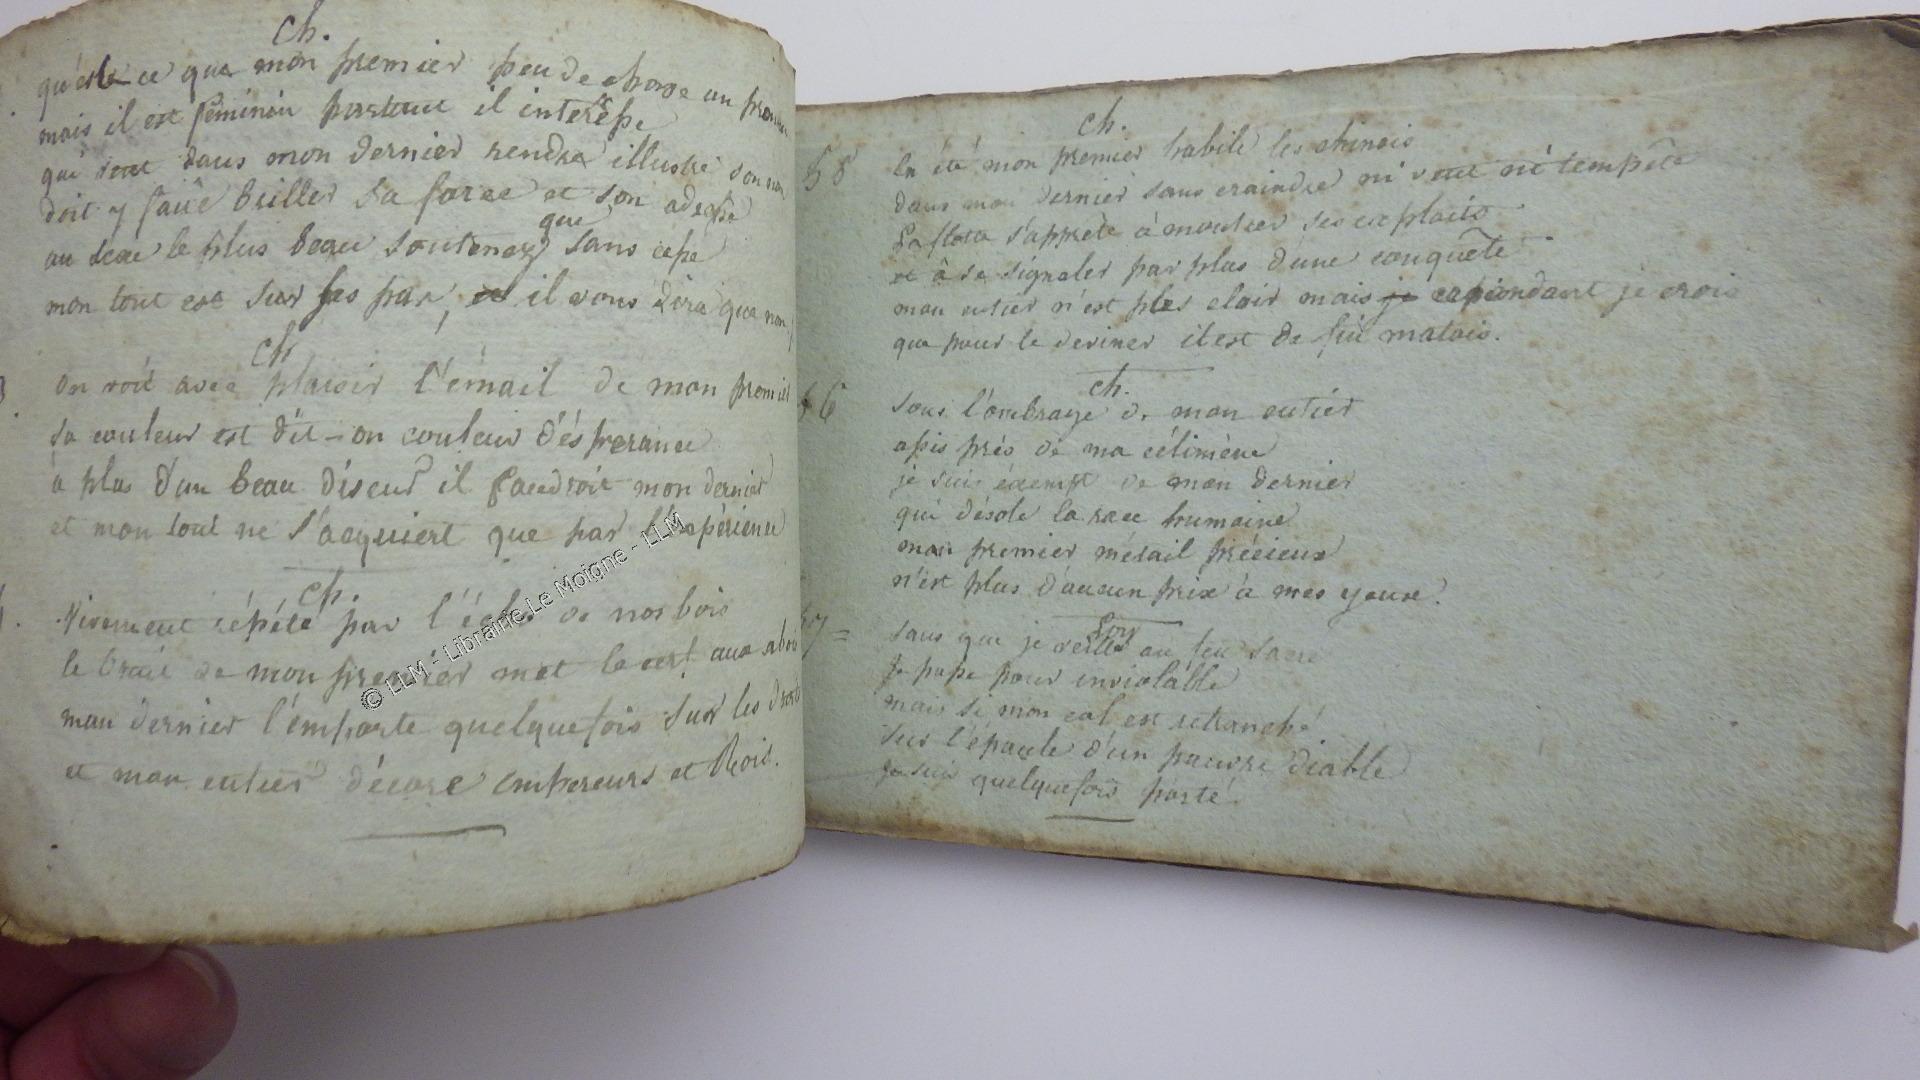 ch.
qu'est ce que mon premier peu de chose un
mais il est féminin partout il intéresse
qui veut dans mon dernier rendre illustre son nom
doit y faire briller sa force et son adresse
au sexe le plus beau soutenez que sans cesse
mon tout est sur ses pas, il vous dira que non
ch
On voit avec plaisir l'émail de mon premier
sa couleur est dit-on couleur d'ésperance
à plus d'un beau diseur il faudroit mon dernier
et mon tout ne s'acquiert que par l'expérience
ch.
Vivement répété par l'écho de nos bois
le bruit de mon premier met le cerf aux abois
mon dernier l'emporte quelquefois sur les droits
et mon entier décore empereurs et Rois.
58
ch.
En été mon premier habile les chinois
dans mon dernier sans craindre ni vent ni tempête
La flotte s'apprête à montrer ses exploits
et à se signaler par plus d'une conquête
mon entier n'est plus clair mais cependant je crois
que pour le deviner il est de fin matois.
ch.
56
sous l'ombrage de mon entier
assis près de ma célimène
je suis exempt de mon dernier
qui désole la race humaine
mon premier métail précieux
n'est plus d'aucun prix à mes yeux.
57 =
sans que je veille au feu sacré
je passe pour inviolable
mais si mon col est retranché
sur l'épaule d'un pauvre diable
je suis quelquefois porté.
© LLM - Librairie Le Moigne - LLM